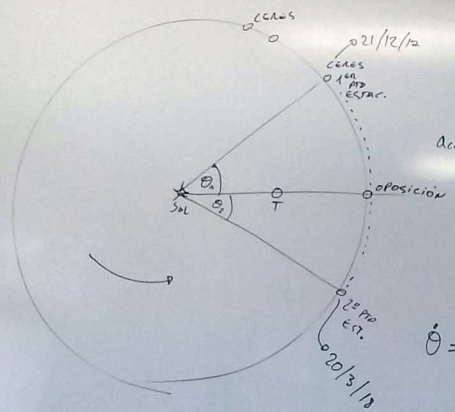 CERES
21/12/12
CERES
1ER
PTO
ESTAC.
Θ1
Θ2
SOL
T
OPOSICIÓN
2º PTO
EST.
20/3/18
Θ̇ =